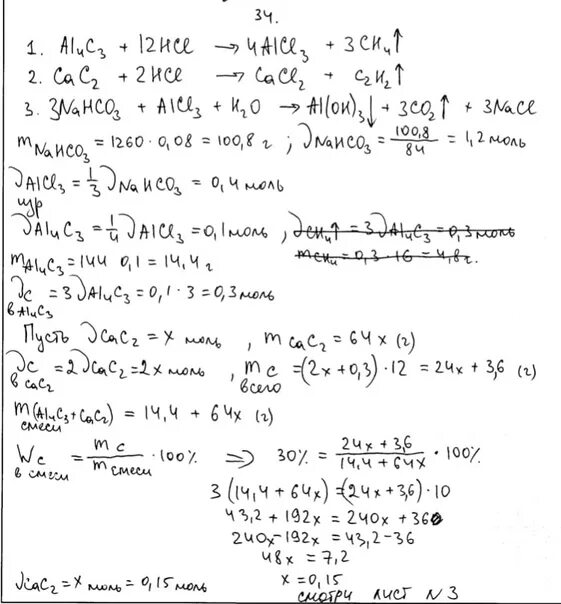 34.
1. Al₄C₃ + 12HCl → 4AlCl₃ + 3CH₄↑
2. CaC₂ + 2HCl → CaCl₂ + C₂H₂↑
3. 3NaHCO₃ + AlCl₃ + H₂O → Al(OH)₃↓ + 3CO₂↑ + 3NaCl
m NaHCO₃ = 1260·0,08 = 100,8 г ; ν NaHCO₃ = 100,8/84 = 1,2 моль
ν AlCl₃ = 1/3 ν NaHCO₃ = 0,4 моль
изр
ν Al₄C₃ = 1/4 ν AlCl₃ = 0,1 моль , ν CH₄↑ = 3 ν Al₄C₃ = 0,3 моль
m Al₄C₃ = 144 0,1 = 14,4 г m CH₄ = 0,3 · 16 = 4,8 г.
ν c = 3 ν Al₄C₃ = 0,1 · 3 = 0,3 моль
в Al₄C₃
Пусть ν CaC₂ = x моль , m CaC₂ = 64x (г)
ν c = 2 ν CaC₂ = 2x моль , m c = (2x + 0,3) · 12 = 24x + 3,6 (г)
в CaC₂ всего
m (Al₄C₃ + CaC₂) = 14,4 + 64x (г)
смеси
W c = m c / m смеси · 100% ⇒ 30% = 24x + 3,6 / 14,4 + 64x · 100%
в смеси
3 (14,4 + 64x) = (24x + 3,6) · 10
43,2 + 192x = 240x + 36
240x - 192x = 43,2 - 36
48x = 7,2
ν CaC₂ = x моль = 0,15 моль x = 0,15
смотри лист N 3